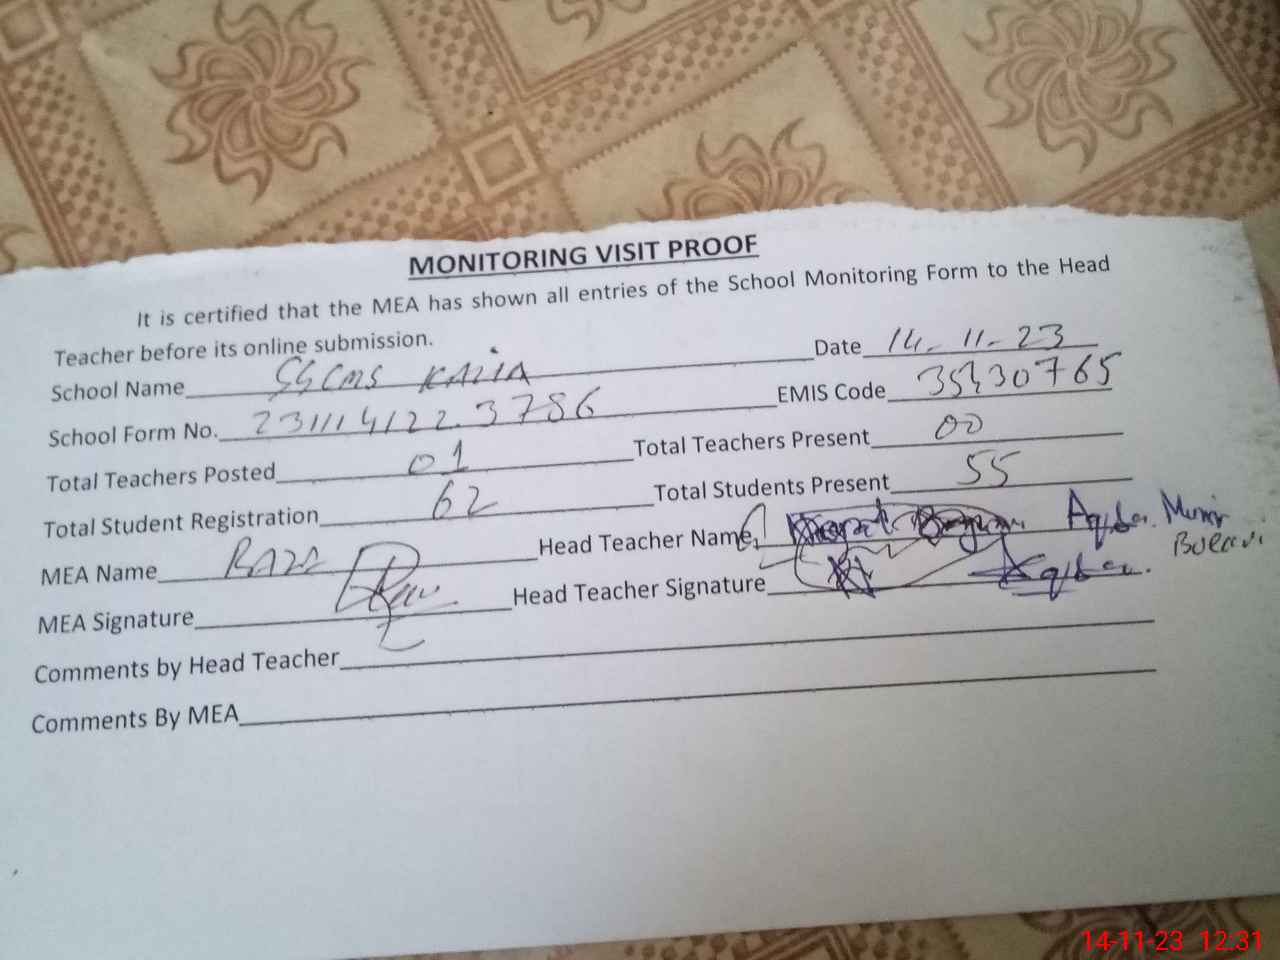 MONITORING VISIT PROOF
It is certified that the MEA has shown all entries of the School Monitoring Form to the Head
Teacher before its online submission.
School Name GGCMS KALIA Date 14-11-23
School Form No. 231114122.3786 EMIS Code 35330765
Total Teachers Posted 01 Total Teachers Present 00
Total Student Registration 62 Total Students Present 55
MEA Name RAZA Head Teacher Name Aqsa Munir
MEA Signature Head Teacher Signature Aqsa
Comments by Head Teacher
Comments By MEA
14-11-23 12:31